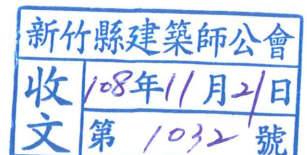 新竹縣建築師公會
收文
108年11月21日
第1032號